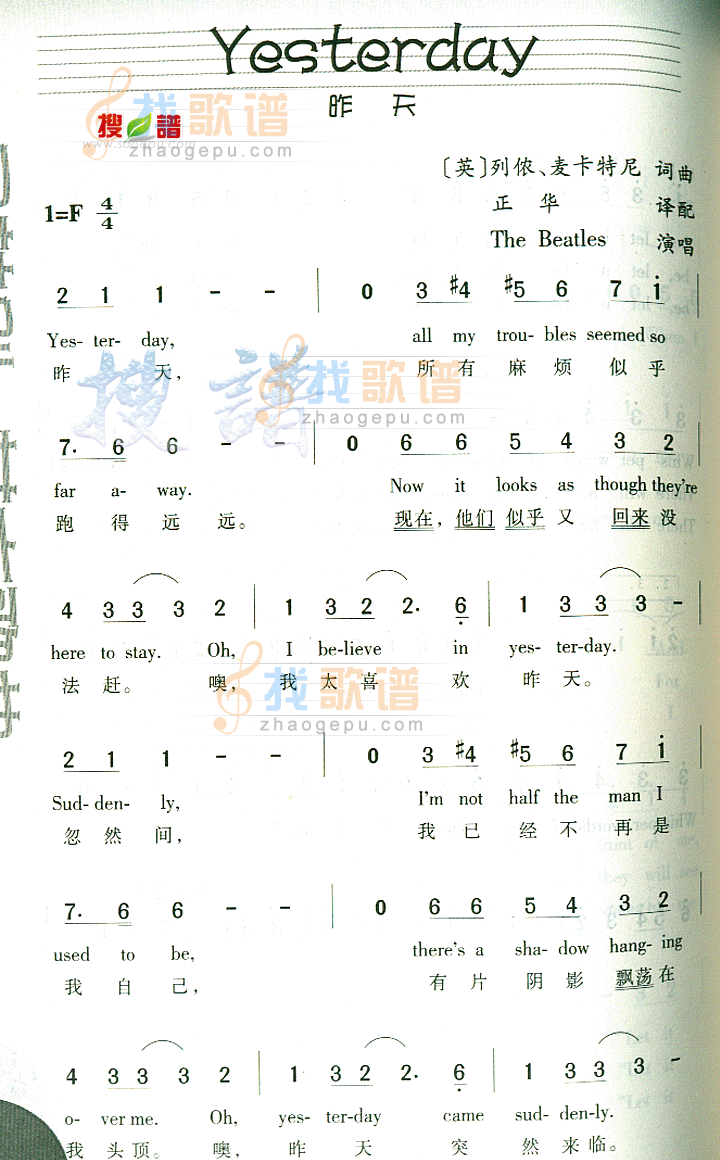 Yesterday
昨天
搜谱
www.sooopu.com
找歌谱
zhaogepu.com
〔英〕列侬、麦卡特尼 词曲
1=F 4/4
正 华 译配
The Beatles 演唱
2 1 1 - - | 0 3 #4 #5 6 7 i
Yes- ter- day, all my trou- bles seemed so
昨 天, 所 有 麻 烦 似 乎
搜谱
找歌谱
zhaogepu.com
7. 6 6 - - | 0 6 6 5 4 3 2
far a- way. Now it looks as though they're
跑 得 远 远。 现在, 他们 似乎 又 回来 没
4 3 3 3 2 | 1 3 2 2. 6 | 1 3 3 3 -
here to stay. Oh, I be-lieve in yes- ter-day.
法 赶。 噢, 我 太 喜 欢 昨 天。
找歌谱
zhaogepu.com
2 1 1 - - | 0 3 #4 #5 6 7 i
Sud- den- ly, I'm not half the man I
忽 然 间, 我 已 经 不 再 是
7. 6 6 - - | 0 6 6 5 4 3 2
used to be, there's a sha- dow hang- ing
我 自 己, 有 片 阴 影 飘荡 在
4 3 3 3 2 | 1 3 2 2. 6 | 1 3 3 3 -
o- ver me. Oh, yes- ter-day came sud- den-ly.
我 头 顶。 噢, 昨 天 突 然 来 临。